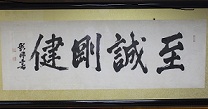 至誠剛健